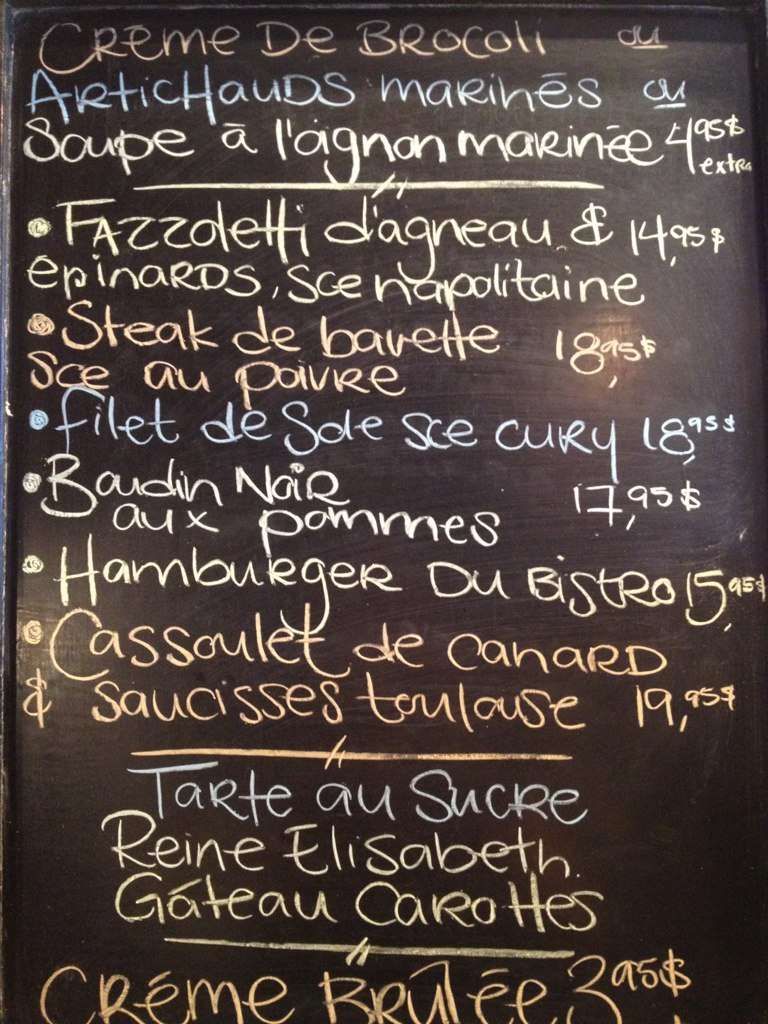 Crème De Brocoli ou
Artichauds marinés ou
Soupe à l'oignon marinée 4,95$ extra
• Fazzoletti d'agneau & 14,95$
épinards, sce napolitaine
• Steak de bavette 18,95$
sce au poivre
• filet de Sole sce cury 18,95$
• Boudin Noir 17,95$
aux pommes
• Hamburger Du Bistro 15,95$
• Cassoulet de canard
& saucisses toulouse 19,95$
Tarte au Sucre
Reine Elisabeth
Gâteau Carottes
Crème Brûlée 3,95$